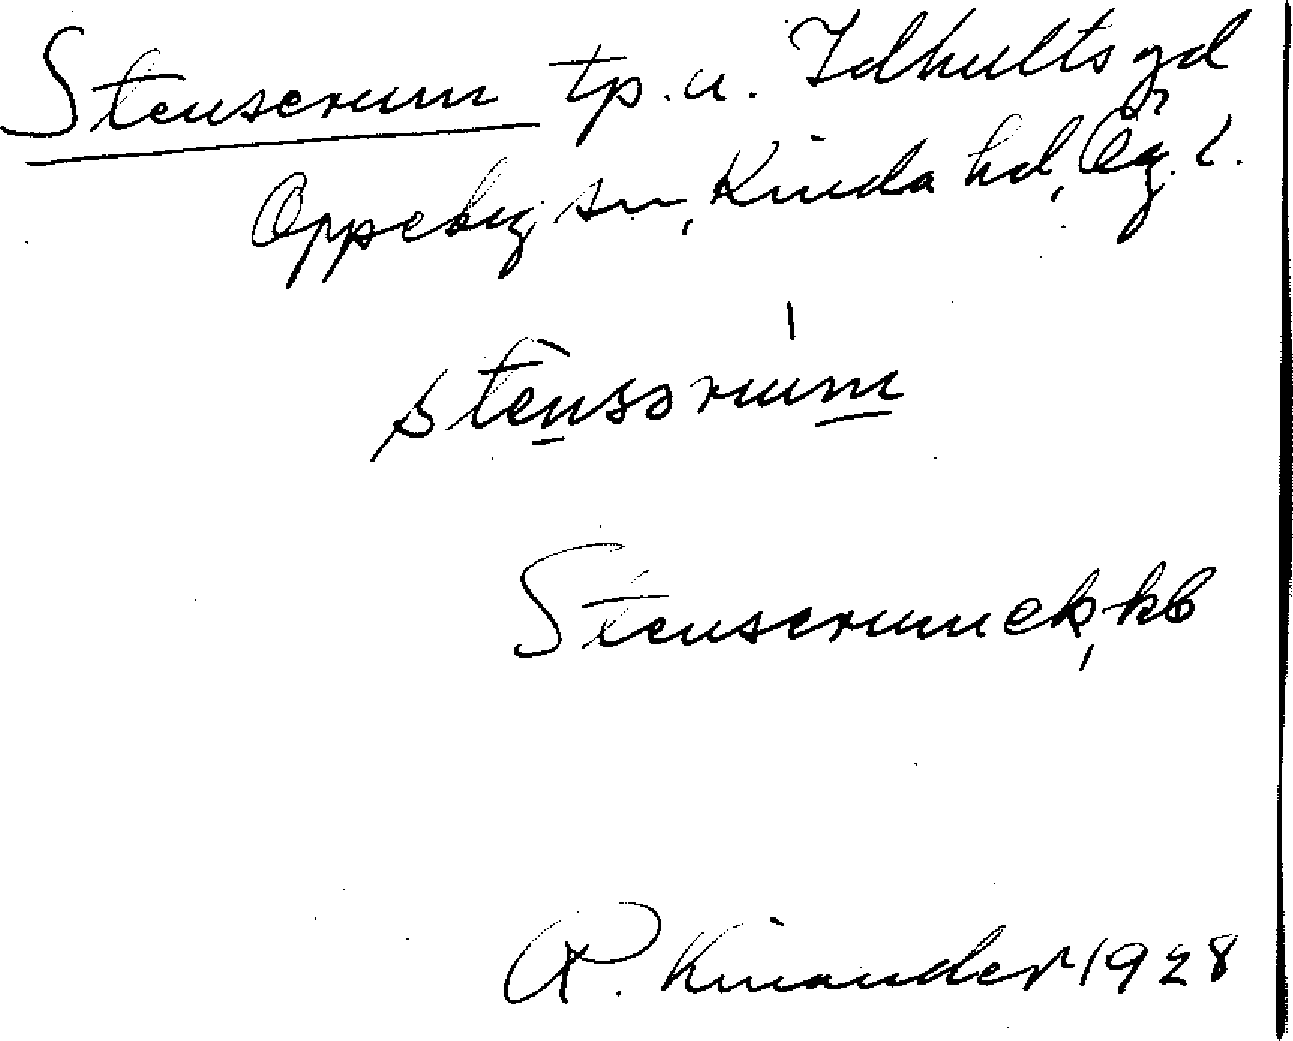 Stenserum tp. u. Idhults gd
Oppeby sn, Kinda hd, Ög. l.
stensərum
Stenserum ek, kb
R. Kinander 1928